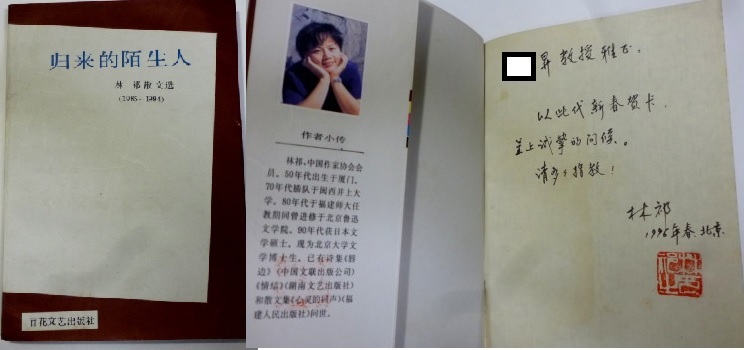 归来的陌生人
林 祁散文选
(1985-1994)
百花文艺出版社
作者小传
林祁,中国作家协会会
员。50年代出生于厦门,
70年代插队于闽西并上大
学。80年代于福建师大任
教期间曾进修于北京鲁迅
文学院。90年代获日本文
学硕士。现为北京大学文
学博士生。已有诗集《唇
边》(中国文联出版公司)
《情结》(湖南文艺出版社)
和散文集《心灵的回声》(福
建人民出版社)问世。
昇教授雅正。
以此代新春贺卡,
并上诚挚的问候。
请多多指教!
林祁
1996年春.北京